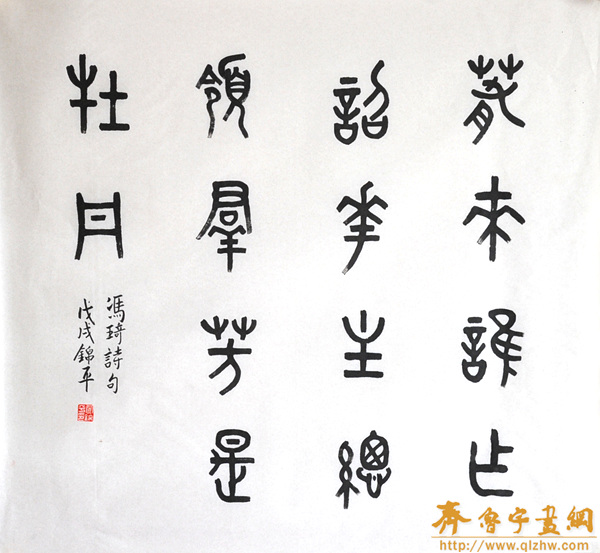 春來誰作
韶華主總
領羣芳是
牡丹
馮琦詩句
戊戌錦平
齊魯字畫網
http://www.qlzhw.com